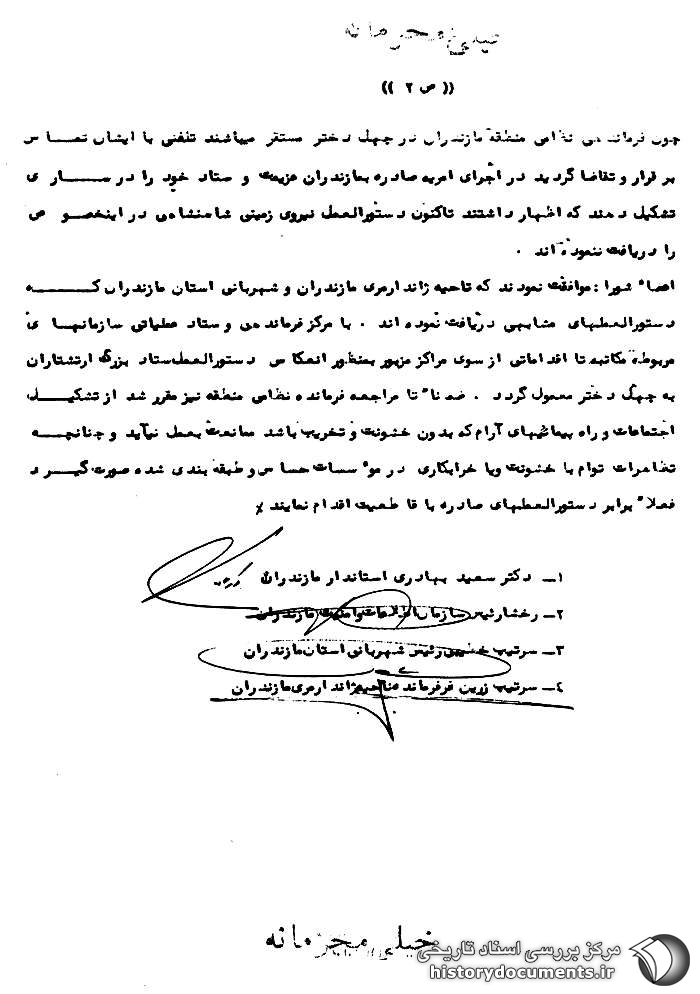 خیلی محرمانه
(( ص ۲ ))
چون فرماندهی نظامی منطقه مازندران در چهل دختر مستقر میباشند تلفنی با ایشان تماس
برقرار و تقاضا گردید در اجرای امریه صادره بمازندران عزیمت و ستاد خود را در ساری
تشکیل دهند که اظهار داشتند تاکنون دستورالعمل نیروی زمینی شاهنشاهی در اینخصوص
را دریافت ننموده اند .
اعضاء شورا : موافقت نمودند که ناحیه ژاندارمری مازندران و شهربانی استان مازندران که
دستورالعملهای مشابهی دریافت نموده اند . با مرکز فرماندهی و ستاد عملیاتی سازمانهای
مربوطه مکاتبه تا اقداماتی از سوی مراکز مزبور بمنظور انعکاس دستورالعمل ستاد بزرگ ارتشتاران
به چهل دختر معمول گردد . ضمناً تا مراجعه فرمانده نظامی منطقه نیز مقرر شد از تشکیل
اجتماعات و راه پیمائیهای آرام که بدون خشونت و تخریب باشد ممانعت بعمل نیاید و چنانچه
تظاهرات توام با خشونت ویا خرابکاری در موسسات حساس و طبقه بندی شده صورت گیرد
فعلاً برابر دستورالعملهای صادره با قاطعیت اقدام نمایند
۱ـ دکتر سعید بهادری استاندار مازندران
۲ـ رخشا رئیس سازمان اطلاعات و امنیت مازندران
۳ـ سرتیپ رئیس شهربانی استان مازندران
۴ـ سرتیپ زرین فر فرمانده ناحیه ژاندارمری مازندران
خیلی محرمانه
مرکز بررسی اسناد تاریخی
historydocuments.ir